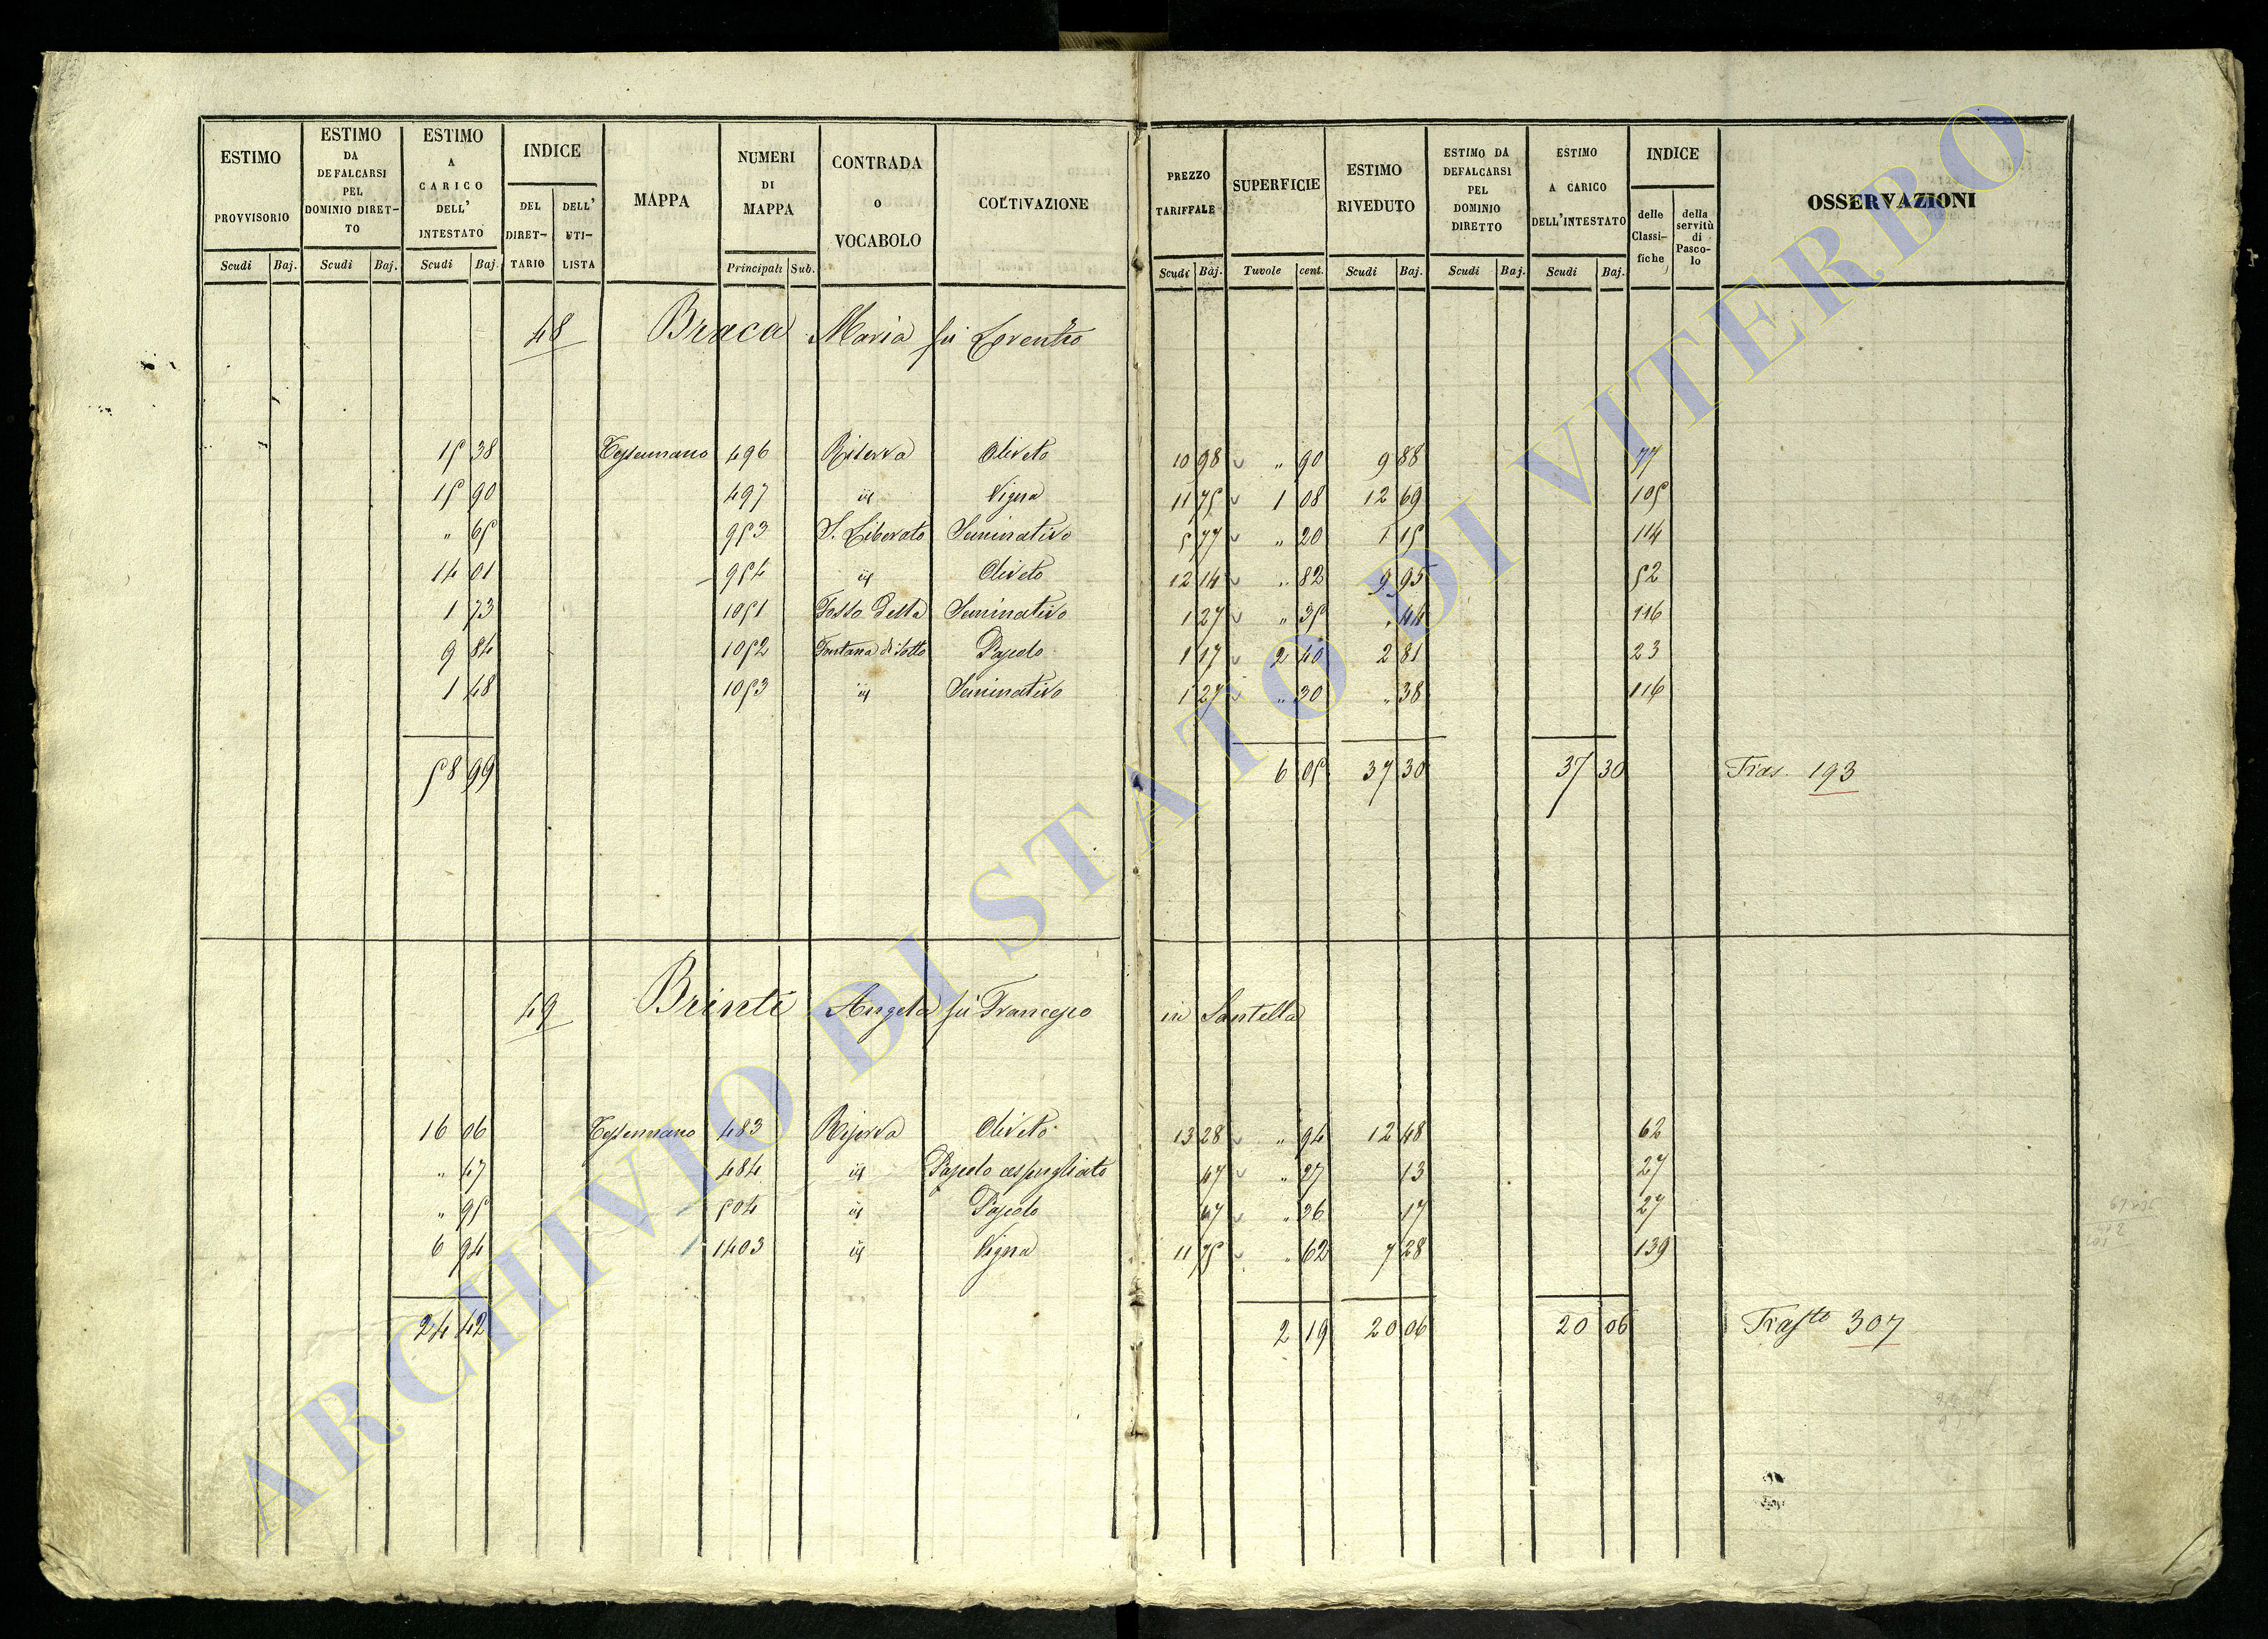 ESTIMO PROVVISORIO | ESTIMO DA DEFALCARSI PEL DOMINIO DIRETTO | ESTIMO A CARICO DELL' INTESTATO | INDICE DEL DIRETTARIO | DELL' UTILISTA | MAPPA | NUMERI DI MAPPA | CONTRADA o VOCABOLO | COLTIVAZIONE | PREZZO TARIFFALE | SUPERFICIE | ESTIMO RIVEDUTO | ESTIMO DA DEFALCARSI PEL DOMINIO DIRETTO | ESTIMO A CARICO DELL'INTESTATO | INDICE delle Classifiche | della servitù di Pascolo | OSSERVAZIONI
Scudi Baj. | Scudi Baj. | Scudi Baj. | Principali Sub. | Scudi Baj. | Tavole cent. | Scudi Baj. | Scudi Baj. | Scudi Baj.
48 Braca Maria fu Lorenzo
15 38 496 Riserva Oliveto 10 98 " 90 9 88 77
15 90 497 id Vigna 11 75 1 08 12 69 105
" 65 953 S. Liberato Seminativo 5 77 " 20 1 15 114
14 01 954 id Oliveto 12 14 " 82 9 95 52
1 73 1051 Fosso della Seminativo 1 27 " 35 " 44 116
9 84 1052 Fontana di sotto Pascolo 1 17 2 40 2 81 23
1 48 1053 id Seminativo 1 27 " 30 " 38 116
58 99 6 05 37 30 37 30 Tras. 193
49 Brinti Angela fu Francesco in Santella
16 06 483 Riserva Oliveto 13 28 " 94 12 48 62
" 47 484 id Pascolo cespugliato 47 " 27 13 27
" 95 504 id Pascolo 67 " 26 17 27
6 94 1403 id Vigna 11 75 " 62 7 28 139
24 42 2 19 20 06 20 06 Trasto 307
ARCHIVIO DI STATO DI VITERBO